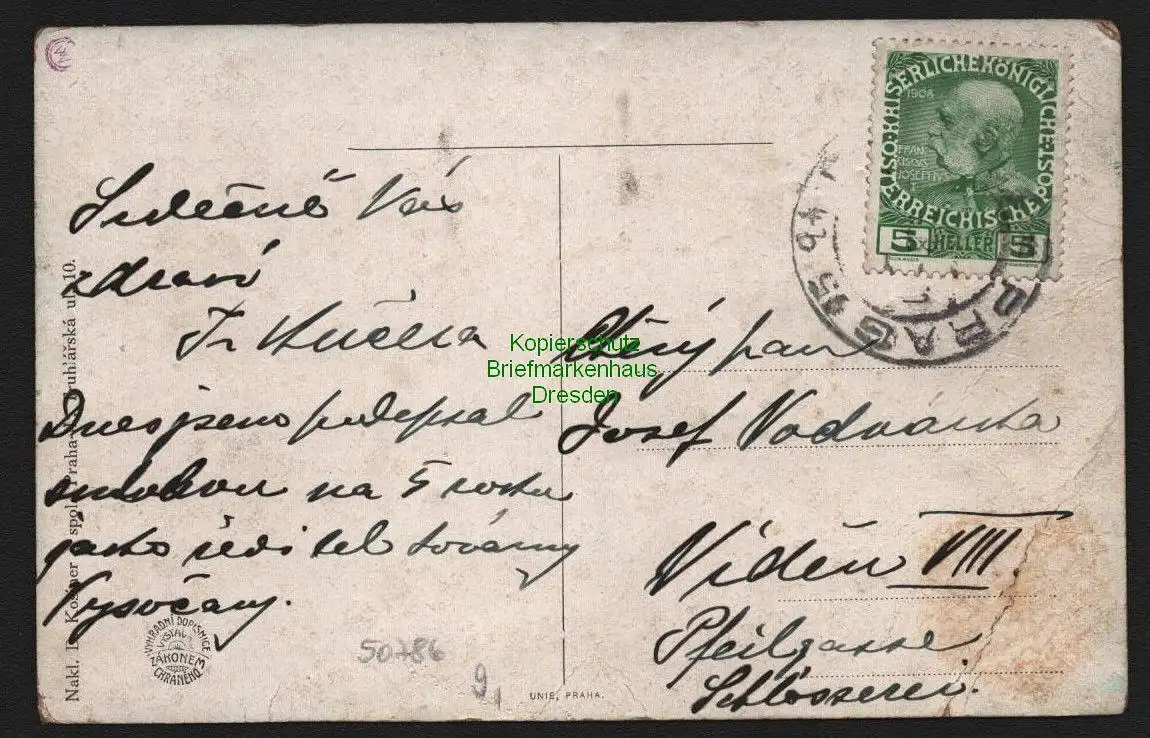 Srdečně Vás
zdraví
Fr Kučera
Dnes jsem podepsal
smlouvu na 5 roků
jako ředitel továrny
Vysočany.
pan
Josef Vodvárka
Vídeň VIII.
Pfeilgasse
Schlösserei.
ÖSTERREICHISCHE POST
KAISERLICHE KÖNIGLICHE
1908
FRAN
CISCVS
JOSEPHVS
I
5 HELLER 5
PRAG
Kopierschutz
Briefmarkenhaus
Dresden
Nakl. Košiner spol. Praha Truhlářská ul. 10.
VÝHRADNÍ DOPISNICE
ZÁKONEM
CHRÁNĚNO
50786
9
UNIE, PRAHA.